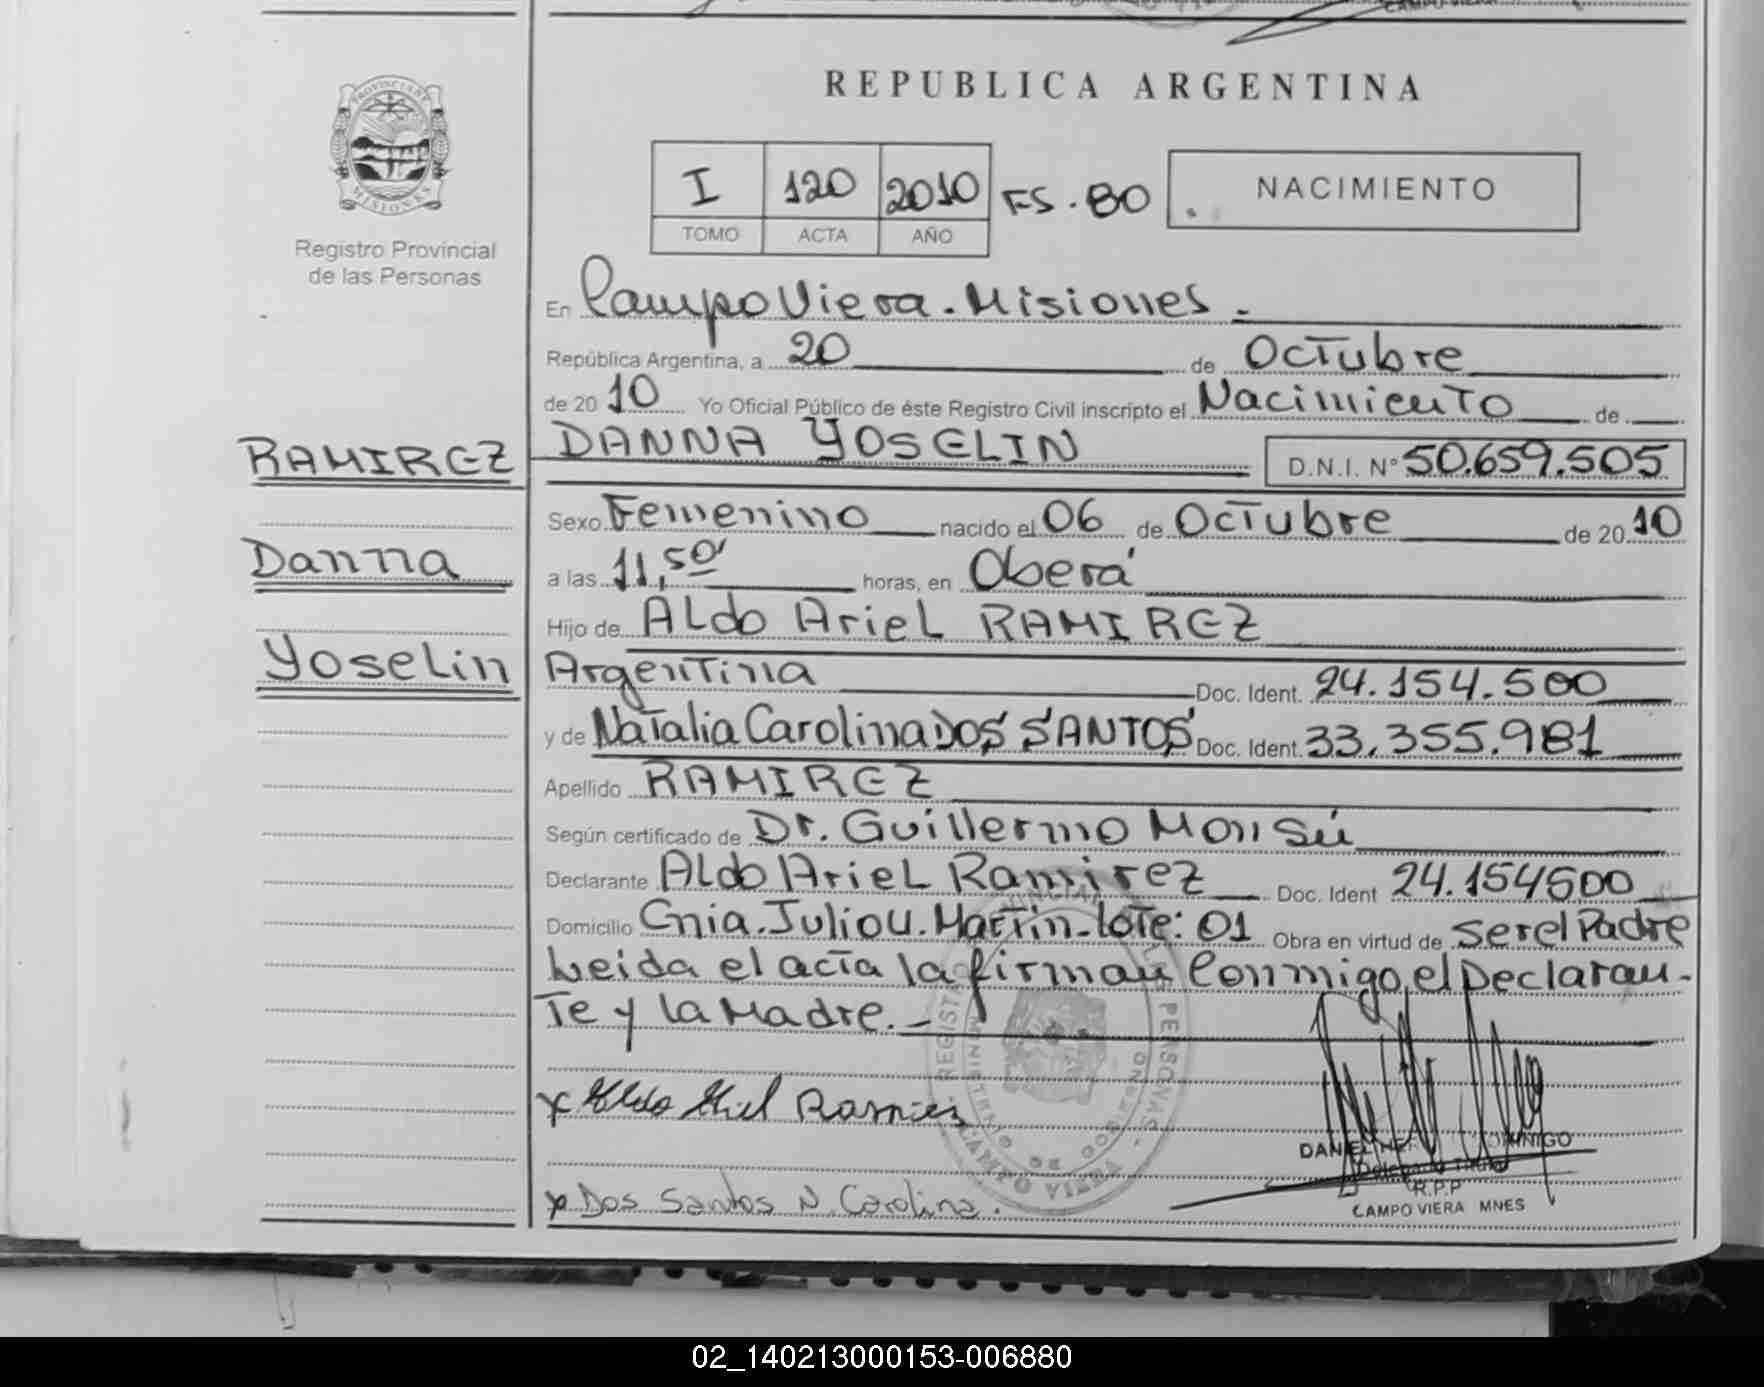 CAMPO VIERA
REPUBLICA ARGENTINA
PROVINCIA DE
MISIONES
Registro Provincial
de las Personas
I 120 2010 FS. 80
TOMO ACTA AÑO
NACIMIENTO
En Campo Viera. Misiones.
República Argentina, a 20 de Octubre
de 2010 Yo Oficial Público de éste Registro Civil inscripto el Nacimiento de
RAMIREZ
DANNA YOSELIN D.N.I. N° 50.659.505
Sexo Femenino nacido el 06 de Octubre de 2010
Danna
a las 11,50' horas, en Oberá
Hijo de ALdo ArieL RAMIREZ
YoseLin
Argentina Doc. Ident. 24.154.500
y de Natalia Carolina DOS SANTOS Doc. Ident. 33.355.981
Apellido RAMIREZ
Según certificado de Dr. Guillermo Monsú
Declarante ALdo ArieL Ramirez Doc. Ident 24.154500
Domicilio Cnia. Julio U. Martin-lote: 01 Obra en virtud de ser el Padre
Leida el acta la firman Conmigo, el Declaran-
te y la Madre.-
x Aldo Ariel Ramirez
x Dos Santos N. Carolina.
REGISTRO PROVINCIAL DE LAS PERSONAS
MINISTERIO DE GOBIERNO
CAMPO VIERA
DANIEL
Delegado Titular
R.P.P
CAMPO VIERA MNES
02_140213000153-006880